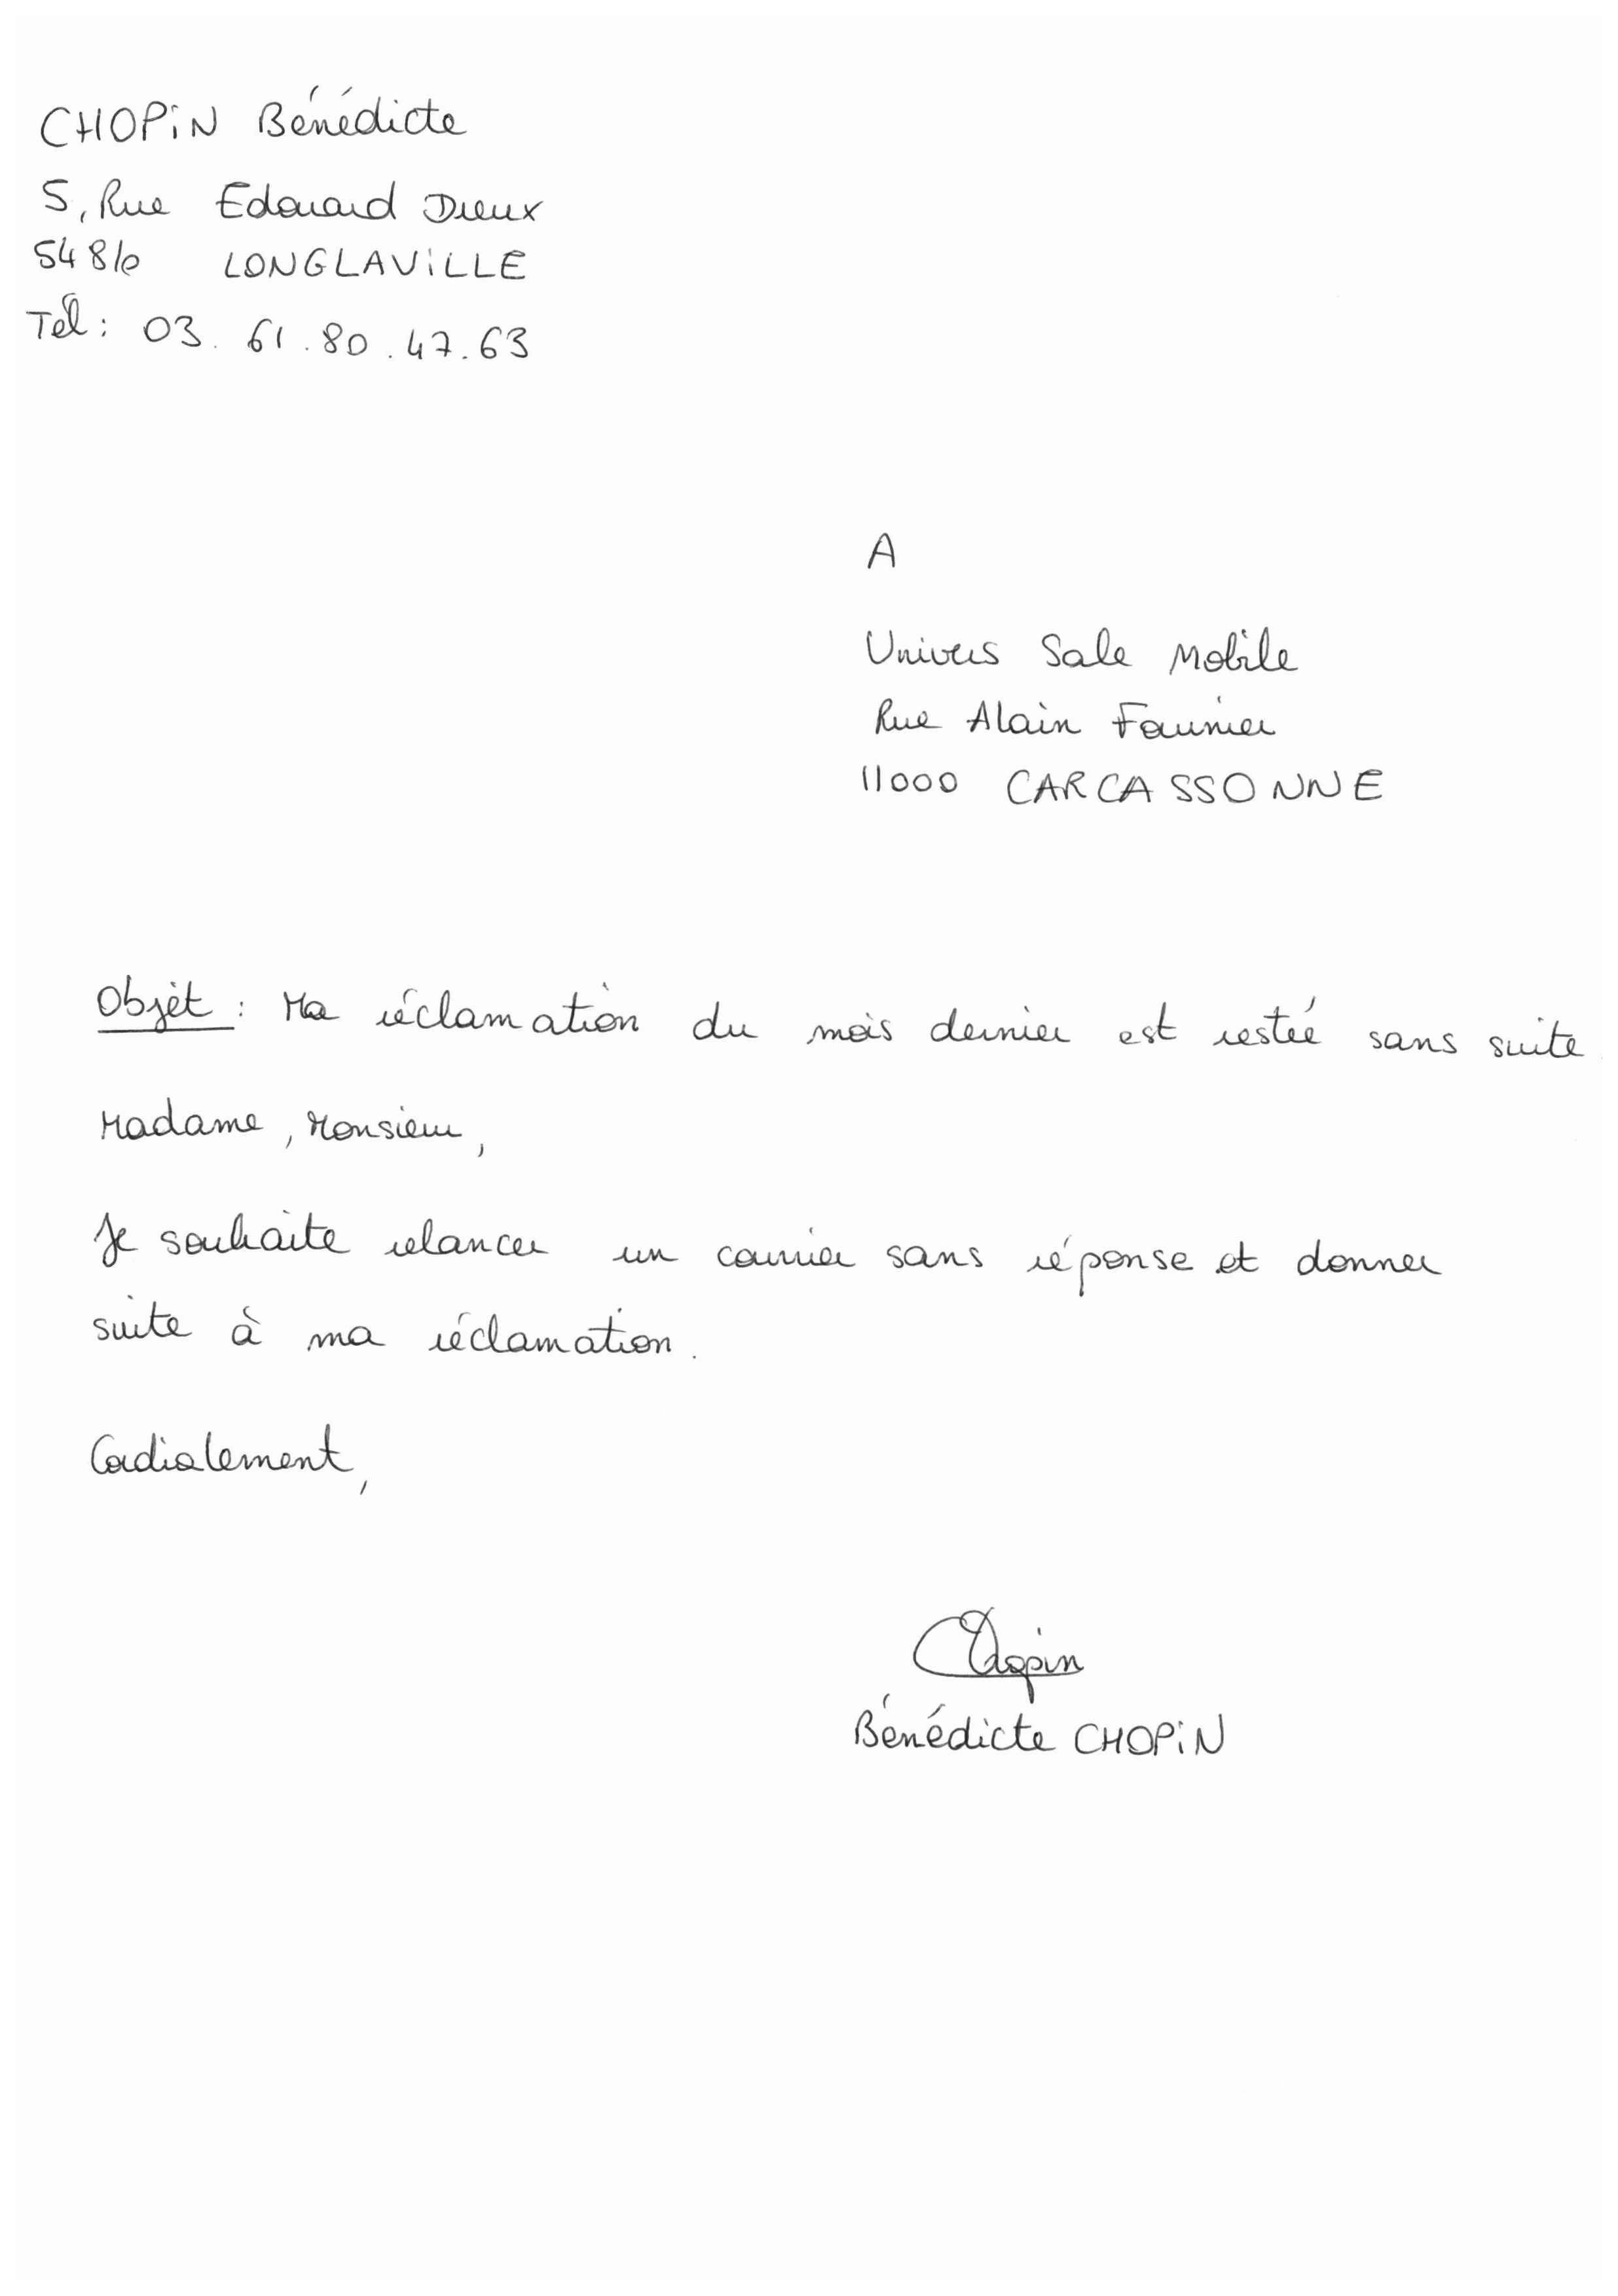 CHOPIN Bénédicte
5, Rue Edouard Dreux
54810 LONGLAVILLE
Tél : 03.61.80.47.63
A
Univers Sale Mobile
Rue Alain Fournier
11000 CARCASSONNE
Objet : Ma réclamation du mois dernier est restée sans suite
Madame, Monsieur,
Je souhaite relancer un courrier sans réponse et donner
suite à ma réclamation.
Cordialement,
Chopin
Bénédicte CHOPIN